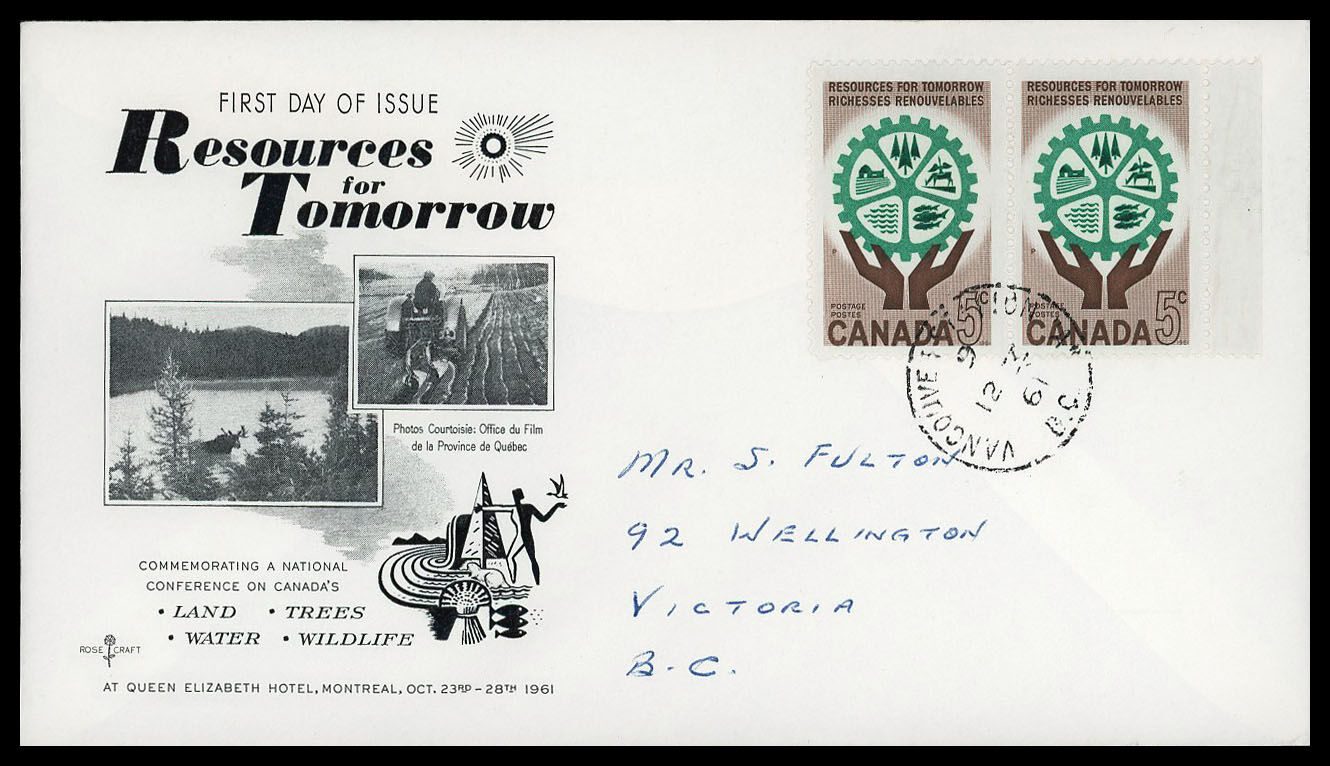 FIRST DAY OF ISSUE
Resources
for
Tomorrow
Photos Courtoisie: Office du Film
de la Province de Québec
COMMEMORATING A NATIONAL
CONFERENCE ON CANADA'S
• LAND • TREES
• WATER • WILDLIFE
ROSE CRAFT
AT QUEEN ELIZABETH HOTEL, MONTREAL, OCT. 23RD - 28TH 1961
RESOURCES FOR TOMORROW
RICHESSES RENOUVELABLES
POSTAGE
POSTES
CANADA 5c
RESOURCES FOR TOMORROW
RICHESSES RENOUVELABLES
POSTAGE
POSTES
CANADA 5c
VANCOUVER
B.C.
12
61
MR. S. FULTON
92 WELLINGTON
VICTORIA
B.C.